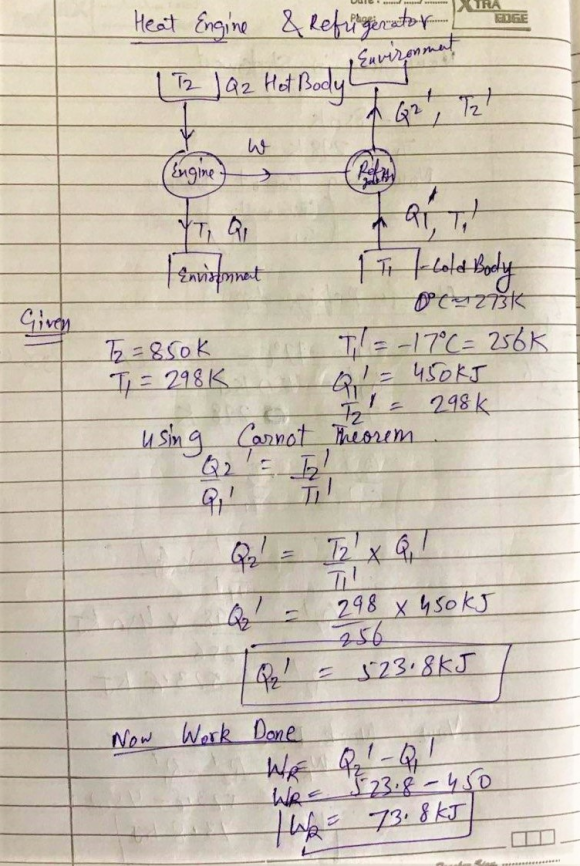 Date :
Page:
XTRA EDGE
Heat Engine & Refrigerator
Environment
T2 Q2 Hot Body
Q2', T2'
W
Engine
T1 Q1
Q1', T1'
Environment
T1 - Cold Body
0°C = 273K
Given
T2 = 850K
T1 = 298K
T1' = -17°C = 256K
Q1' = 450KJ
T2' = 298K
Using Carnot Theorem.
Q2'/Q1' = T2'/T1'
Q2' = T2'/T1' × Q1'
Q2' = 298/256 × 450KJ
Q2' = 523.8KJ
Now Work Done
WR = Q2' - Q1'
WR = 523.8 - 450
WR = 73.8KJ